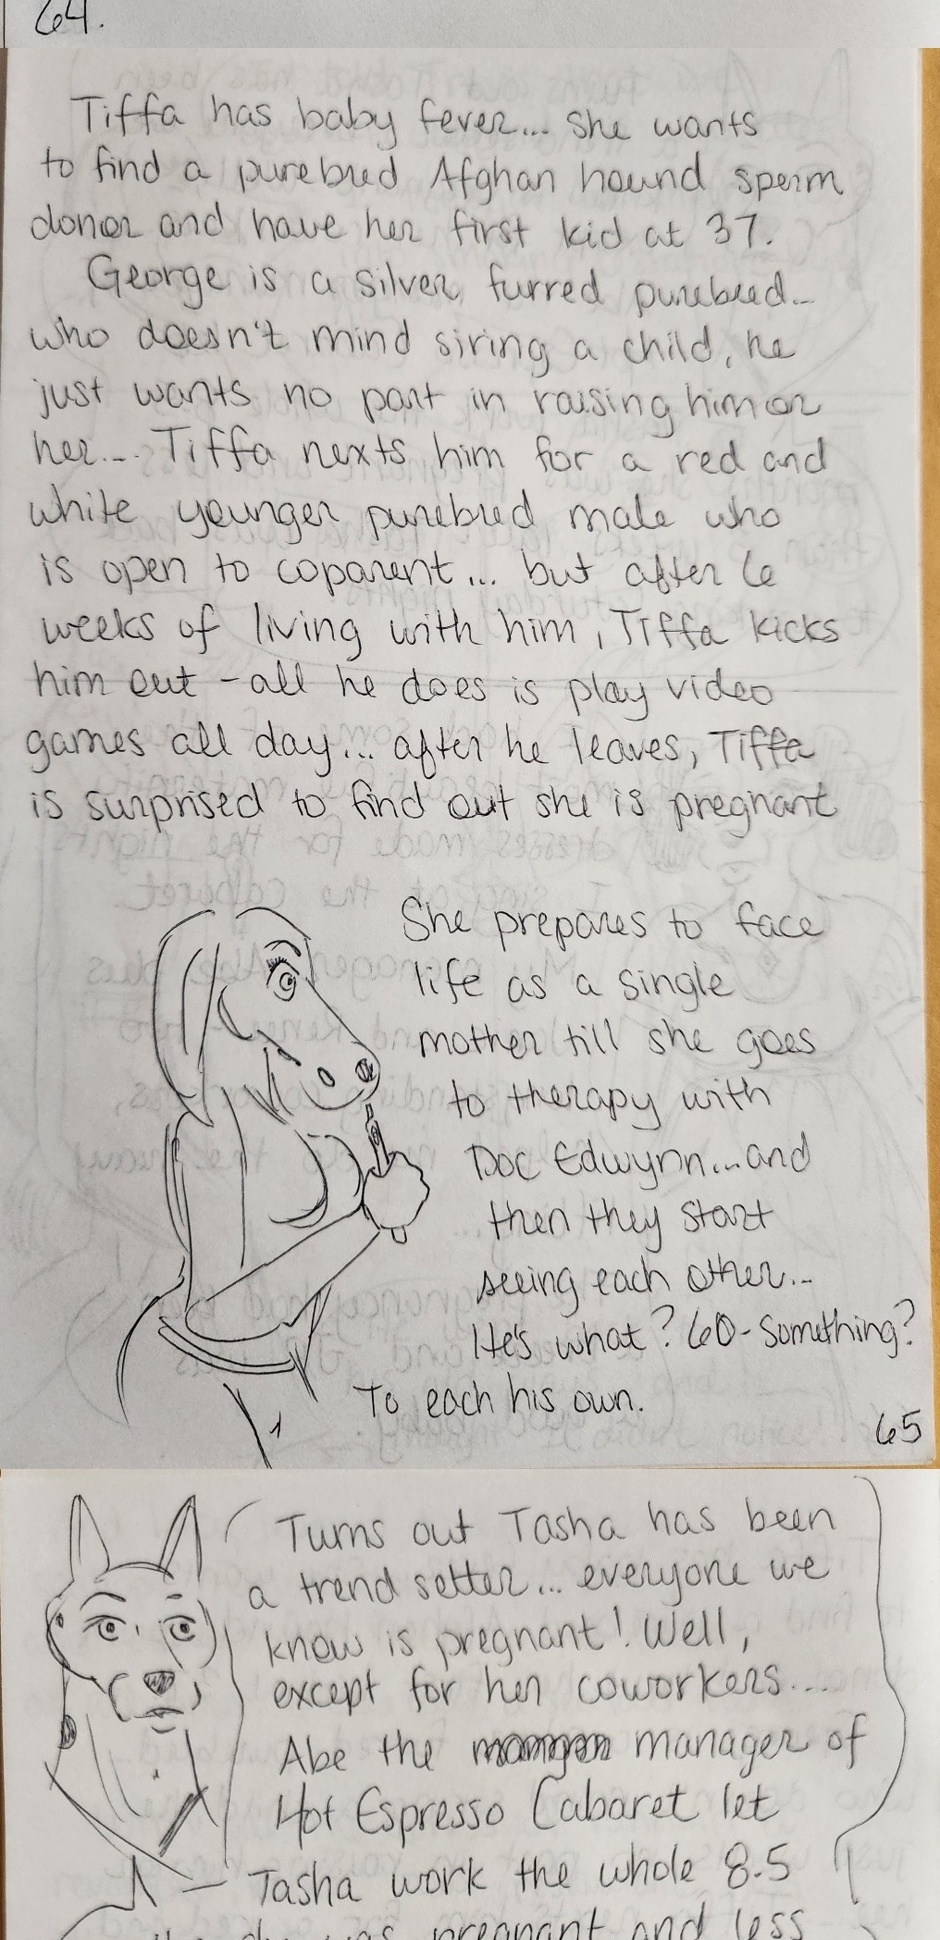 64.
Tiffa has baby fever... she wants
to find a purebred Afghan hound sperm
donor and have her first kid at 37.
George is a silver furred purebred...
who doesn't mind siring a child, he
just wants no part in raising him or
her.... Tiffa nexts him for a red and
white younger purebred male who
is open to coparent... but after 6
weeks of living with him, Tiffa kicks
him out - all he does is play video
games all day... after he leaves, Tiffa
is surprised to find out she is pregnant
She prepares to face
life as a single
mother till she goes
to therapy with
Doc Edwynn... and
then they start
seeing each other...
He's what? 60-something?
To each his own.
65
Turns out Tasha has been
a trend setter... everyone we
know is pregnant! Well,
except for her coworkers....
Abe the manager of
Hot Espresso Cabaret let
Tasha work the whole 8.5
she was pregnant and less